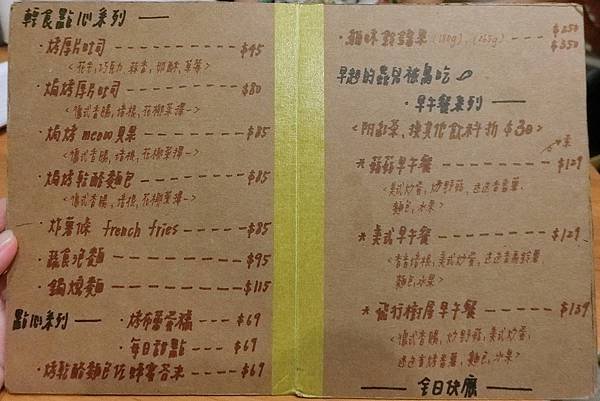 輕食點心系列
·烤厚片吐司 $45
<花生,巧克力,蒜香,奶酥,草莓>
·焗烤厚片吐司 $80
<德式香腸,培根,花椰菜擇一>
·焗烤 mcom貝果 $85
<德式香腸,培根,花椰菜擇一>
·焗烤乾酪麵包 $85
<德式香腸,培根,花椰菜擇一>
·炸薯條 french fries $85
·蔬食泡麵 $95
·鍋燒麵 $115
點心系列 ·烤布蕾香橘 $69
·每日甜點 $69
·烤乾酪麵包佐蜂蜜杏末 $69
·貓味鮮鬆果 (180g), (265g) $250
$350
早起的蟲兒被鳥吃
·早午餐系列
<附紅茶,換其他飲料折 $30>
*菇菇早午餐 $129
素
<美式炒蛋,炒野菇,迷迭香薯,
麵包,水果>
*美式早午餐 $129
<香香培根,美式炒蛋,迷迭香馬鈴薯,
麵包,水果>
*飛行樹屋早午餐 $139
<德式香腸,炒野菇,美式炒蛋,
迷迭香烤香薯,麵包,水果>
全日供應